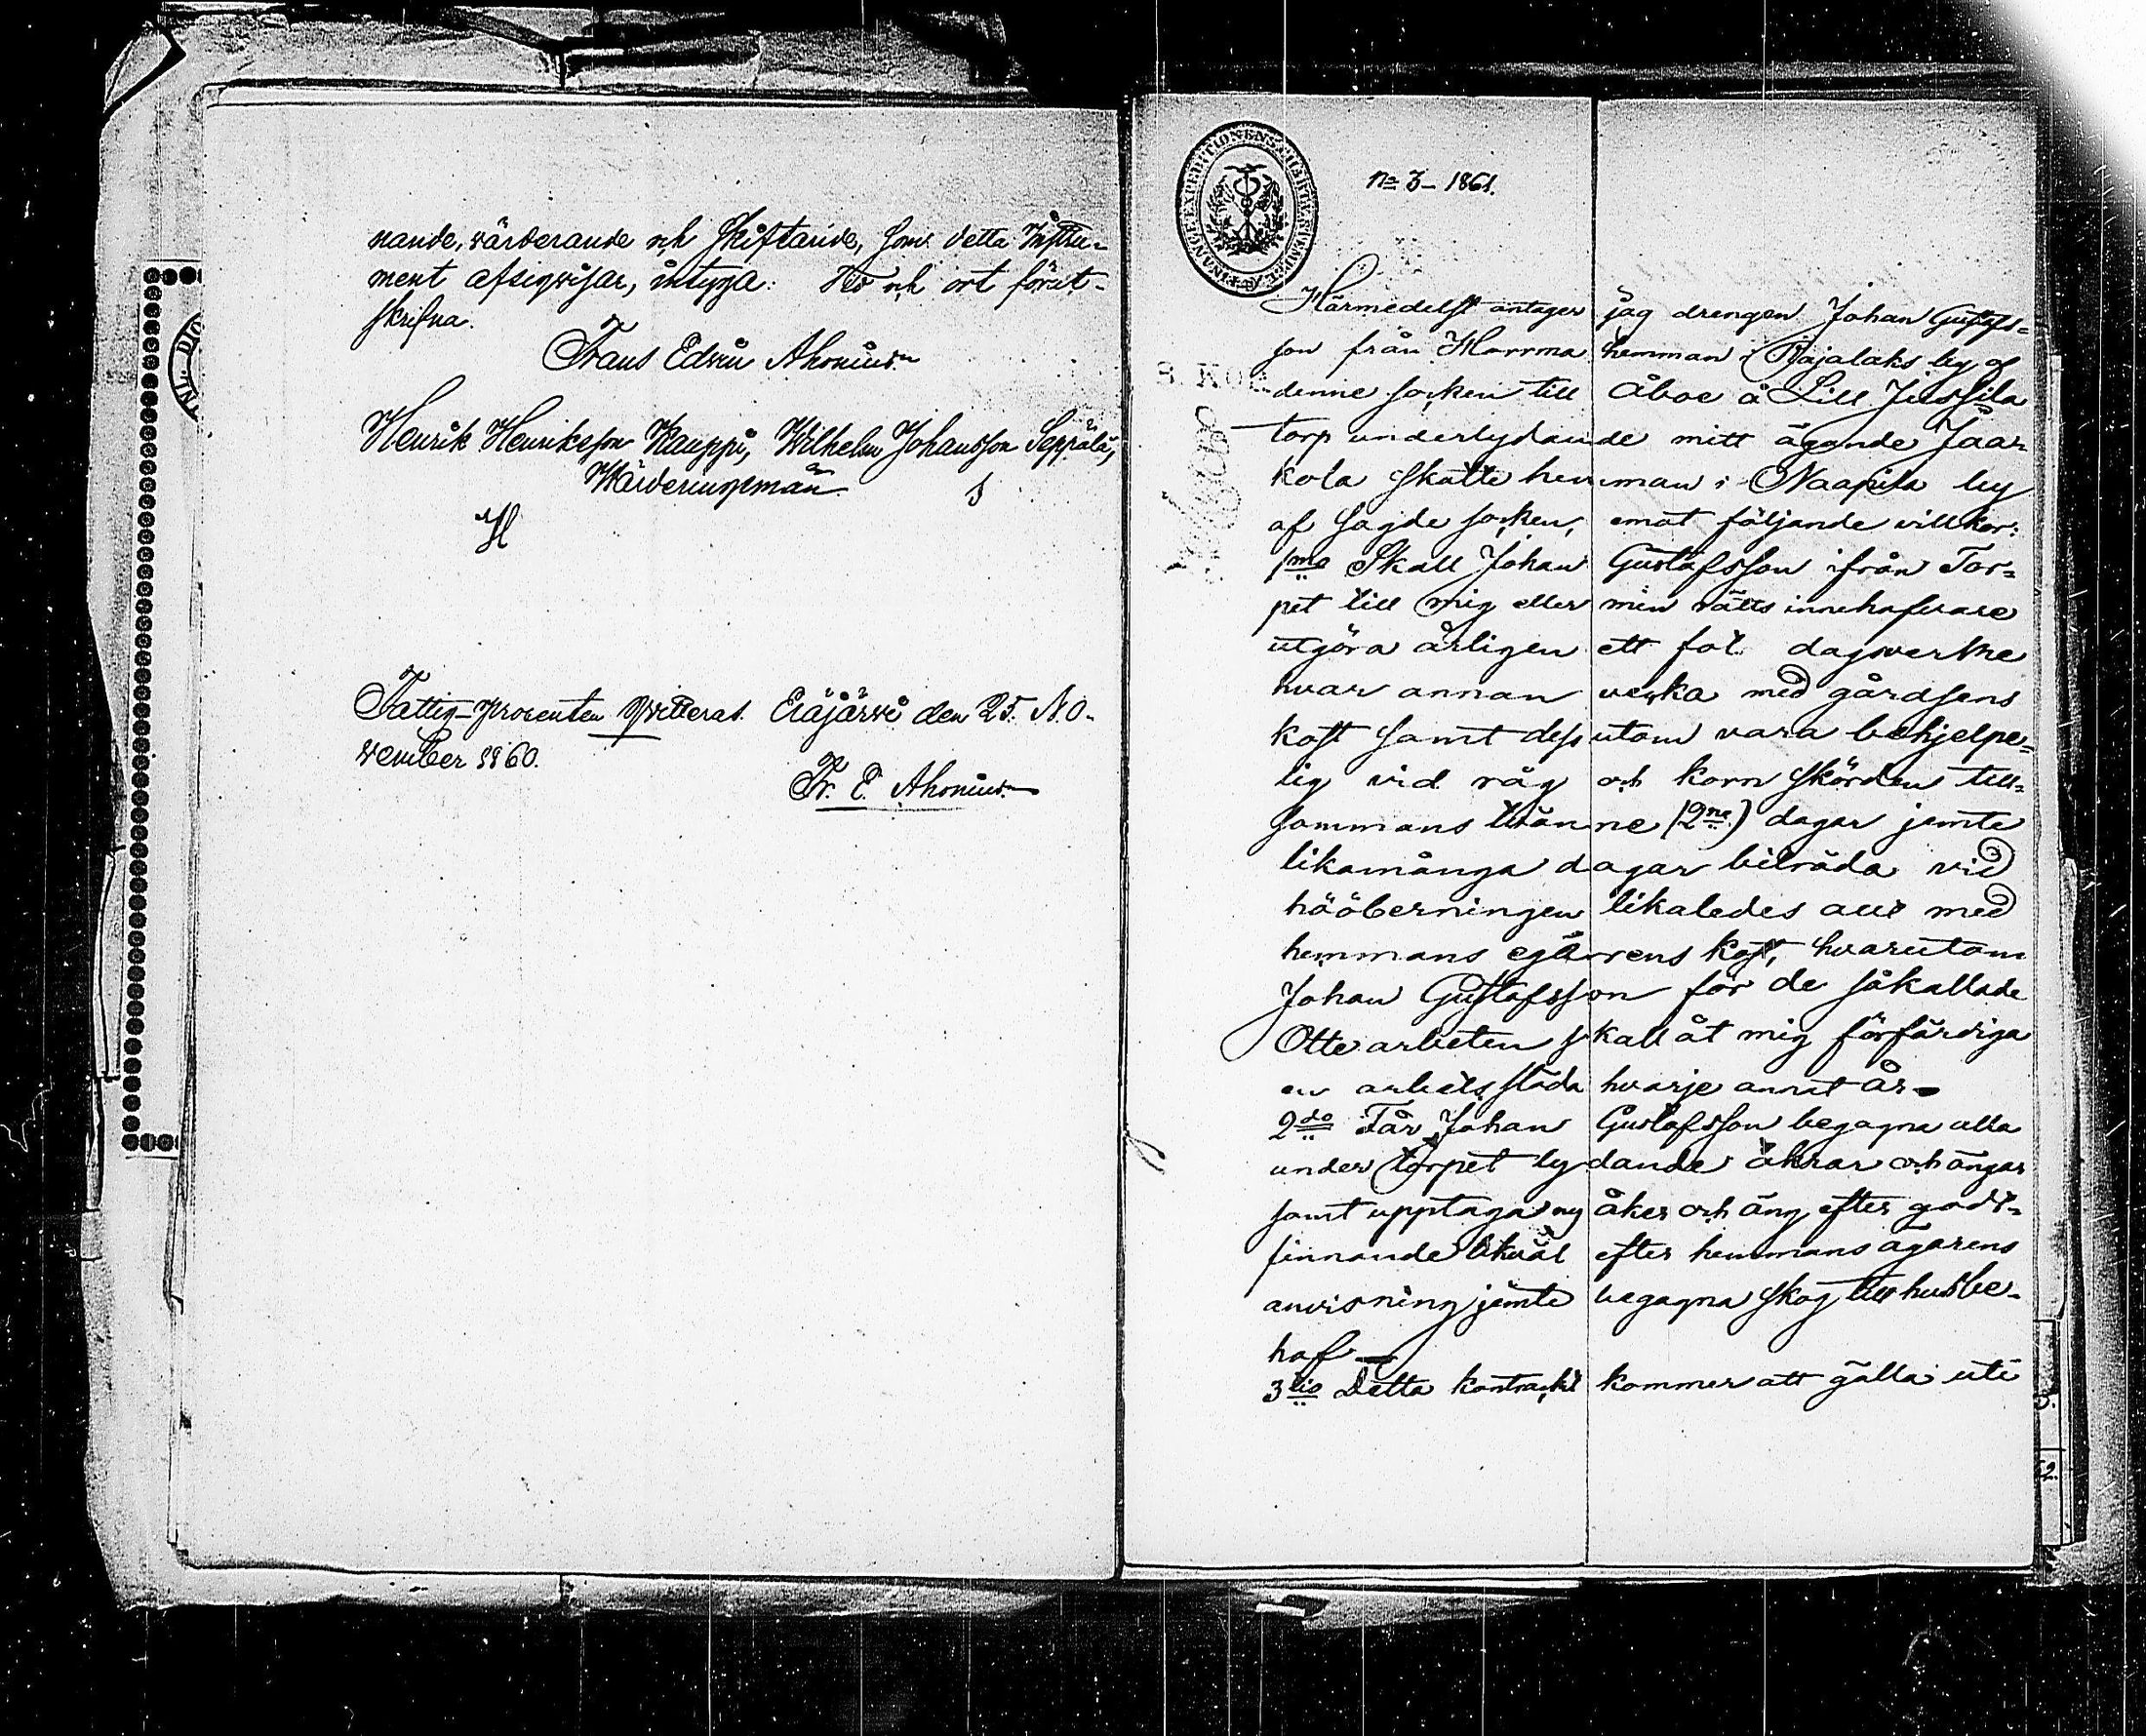 nande, värderande och skiftande, som detta Instru-
ment afsigvisar, intyga. Tid och ort förut-
skrifna.
Frans Edvin Ahonius
Henrik Henriksson Kauppi, Wilhelm Johansson Seppälä,
Wärderingsmän
H
Fattig-procenten qvitteras. Eräjärvi den 25. No-
vember 1860.
Fr. E. Ahonius
No 3 - 1861.
Härmedelst antager jag drengen Johan Gustafs-
son från Horrma hemman i Rajalaks by af
denne socken till Åboe å Lill Jussila
torp underlydande mitt ägande Jaa-
kola Skatte hemman i Naapila by
af sagde socken, emot följande villkor:
1mo Skall Johan Gustafsson ifrån Tor-
pet till mig eller min rätts innehafvare
utgöra årligen ett fot dagsverke
hvar annan vecka med gårdsens
kost samt dessutom vara behjelpe-
lig vid råg och korn skörden till-
sammans tvänne (2ne) dagar jemte
likamånga dagar biträda vid
hööberningen likaledes allt med
hemmans egarens kost, hvarutom
Johan Gustafsson för de såkallade
Otte arbeten skall åt mig förfärdiga
en arbets släda hvarje annat år
2do Får Johan Gustafsson begagna alla
under torpet lydande åkrar och ängar
samt upptaga ny åker och äng efter godt-
finnande likväl efter hemmans ägarens
anvisning jemte begagna skog till husbe-
hof
3tio Detta kontrackt kommer att gälla uti